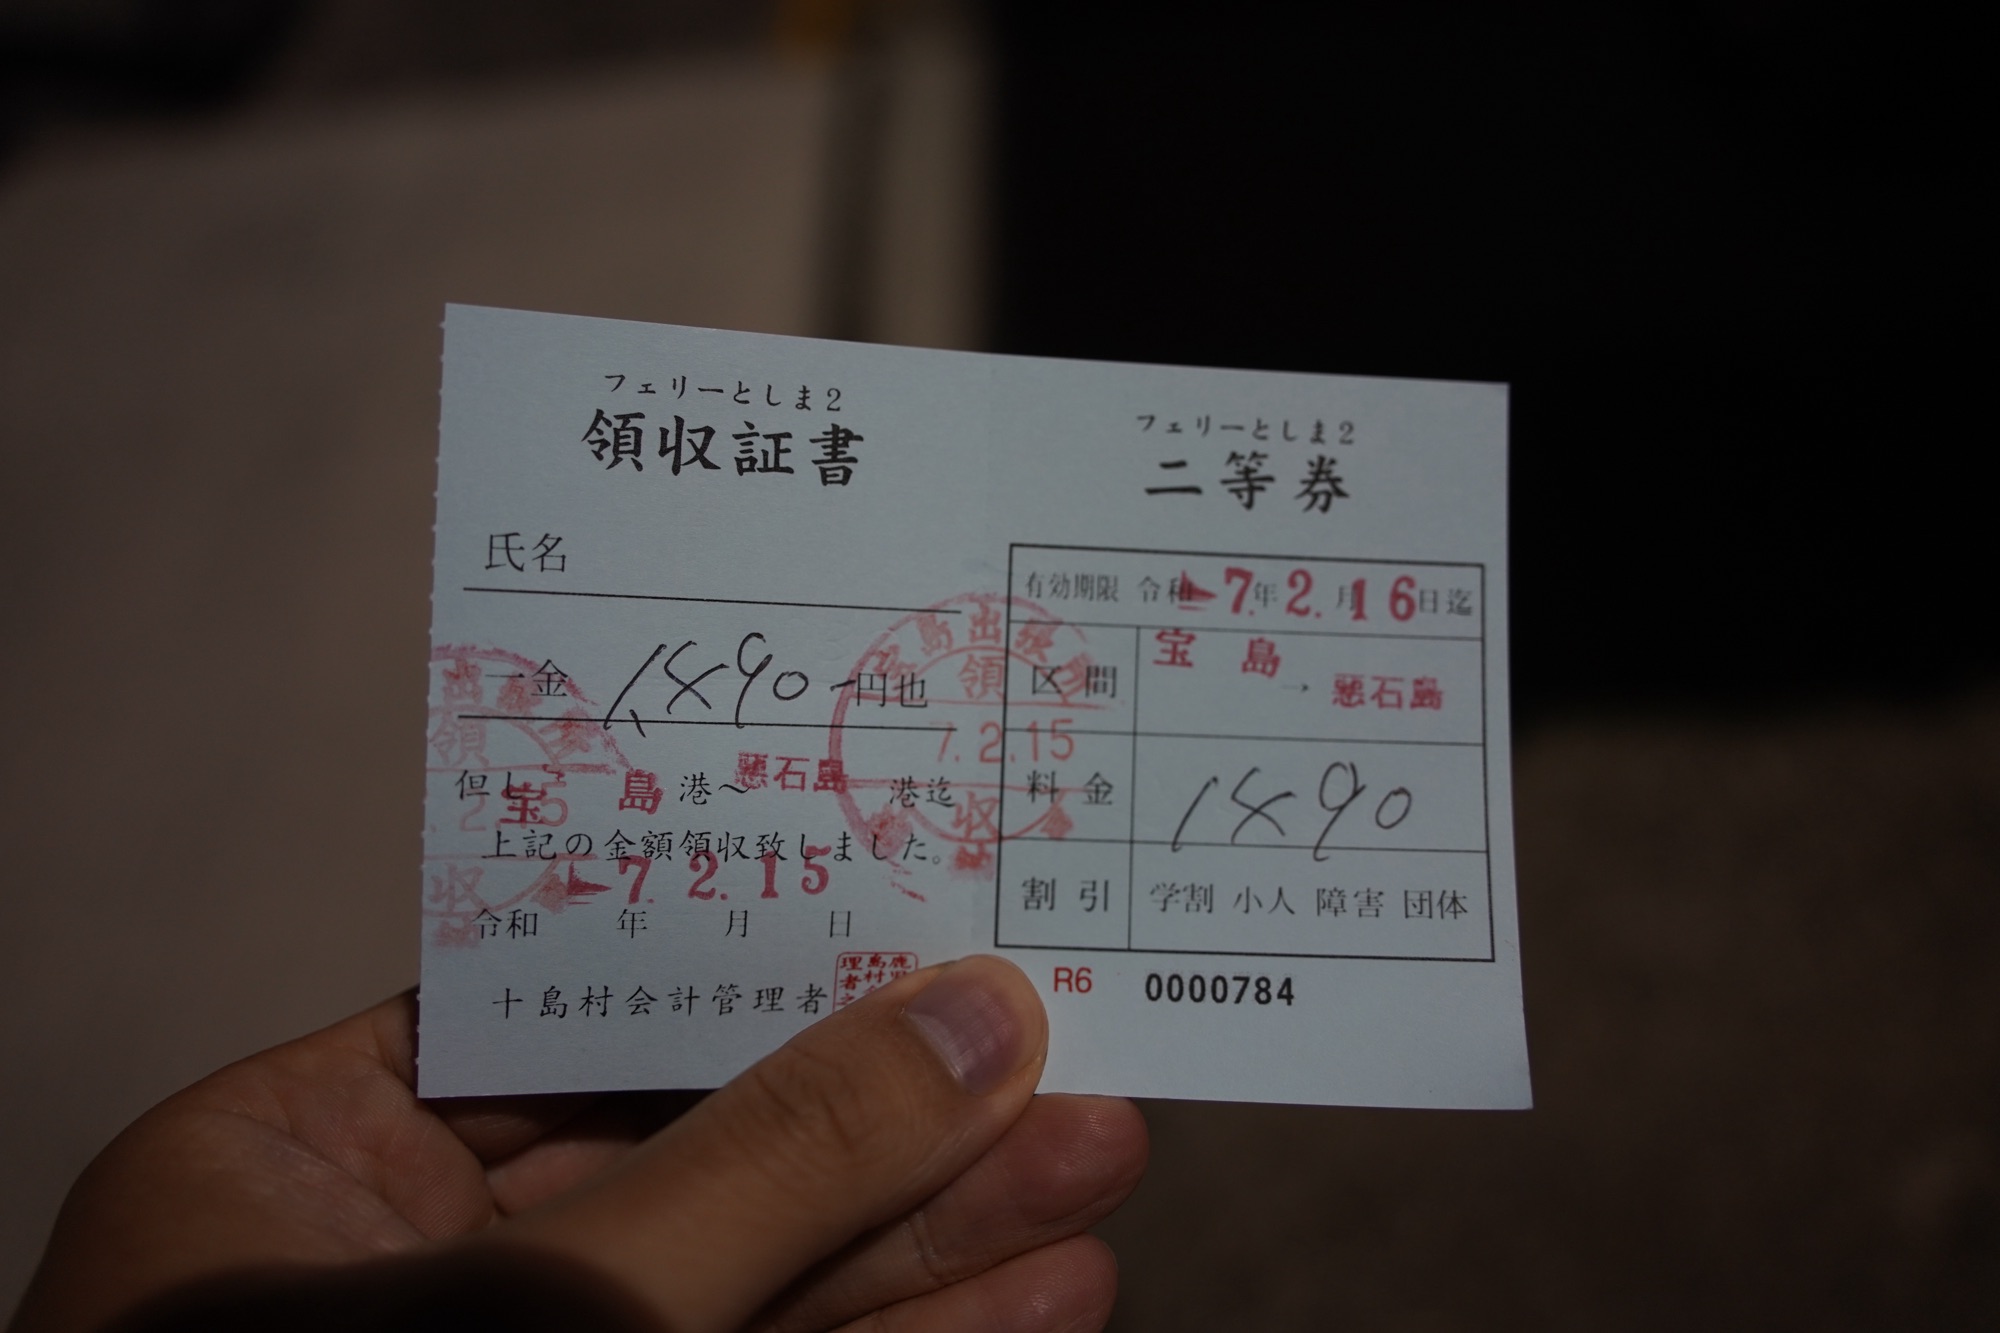 フェリーとしま2
領収証書
氏名
一金 1,890-円也
但し 宝島港〜悪石島港迄
上記の金額領収致しました。
7. 2. 15
令和 年 月 日
十島村会計管理者
フェリーとしま2
二等券
有効期限 令和 7.年 2.月 16日迄
区間 宝島 → 悪石島
料金 1890
割引 学割 小人 障害 団体
R6 0000784
島出張
領
7.2.15
収
領
収